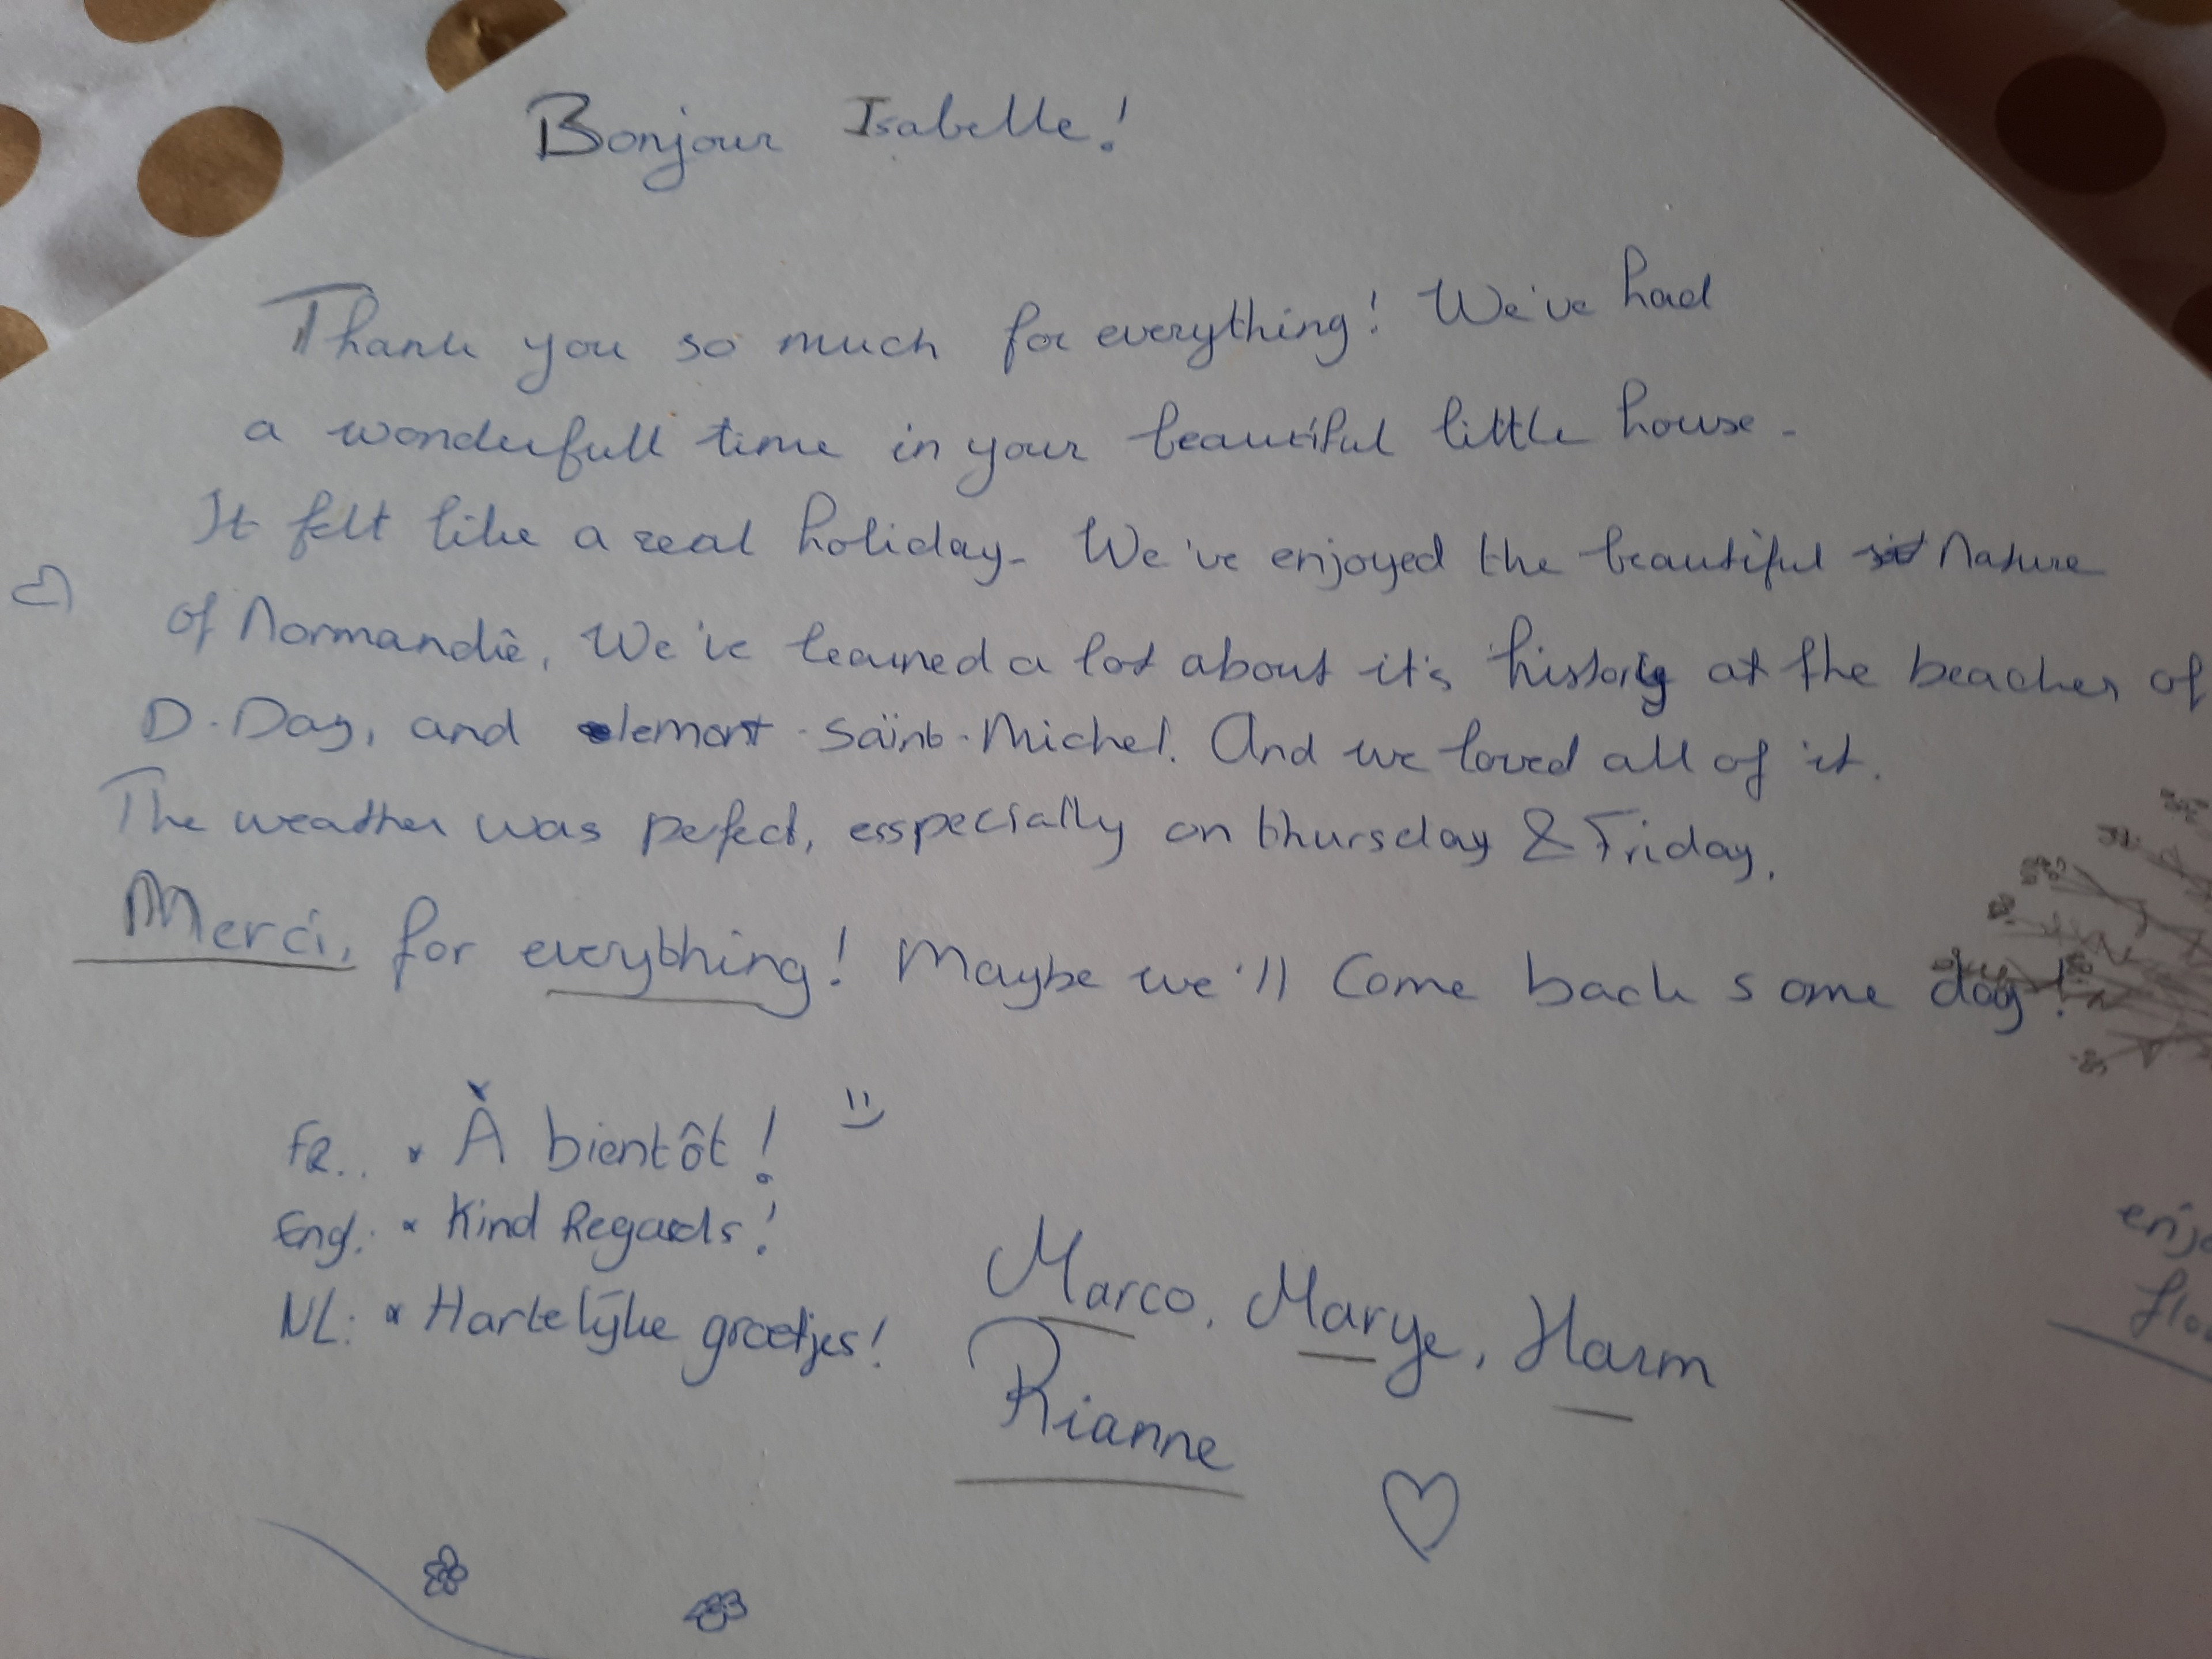 Bonjour Isabelle!
Thank you so much for everything! We've had
a wonderfull time in your beautiful little house.
It felt like a real holiday. We've enjoyed the beautiful Nature
of Normandië. We've learned a lot about it's history at the beaches of
D-Day, and lemont-saint-Michel. And we loved all of it.
The weather was perfect, esspecially on thursday & Friday.
Merci, for everything! Maybe we'll come back some day!
FR.: * À bientôt!
Eng.: * Kind Regards!
NL: * Hartelijke groetjes!
Marco, Marye, Harm
Rianne